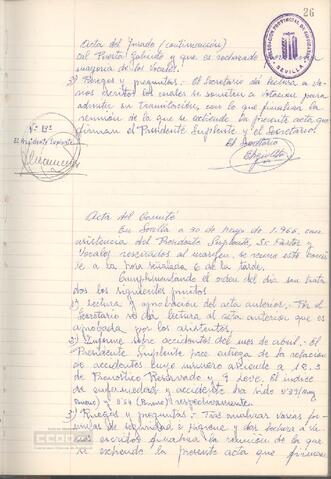 26
Acta del Jurado (continuación)
del Puerto Galindo y que es rechazado
mayoría de los Vocales.
3) Ruegos y preguntas. El Secretario da lectura a va-
rios escritos los cuales se someten a votación para
admitir su tramitación, con lo que finaliza la
reunión de la que se extiende la presente acta que
firman el Presidente Suplente y el Secretario.
Vº Bº
El Presidente Suplente
El Secretario
Acta del Comité
En Sevilla a 30 de mayo de 1.966, con
asistencia del Presidente Suplente, Sr.
Vocales reseñados al margen, se reune este
a la hora señalada, 6 de la tarde.
Cumplimentando el orden del día son trata
dos los siguientes puntos
1) Lectura y aprobación del acta anterior. Por el
Secretario se da lectura al acta anterior que es
aprobada por los asistentes,
2) Informe sobre accidentes del mes de abril. El
Presidente Suplente hace entrega de la relación
de accidentes cuyo número asciende a 12, 3
de Pronóstico Reservado y 9 Leve. El indice
de enfermedad y accidente ha sido
respectivamente.
3) Ruegos y preguntas. Tras analizar varias
de seguridad e Higiene y dar lectura a
escritos finaliza la reunión de la que
se extiende la presente acta que firman